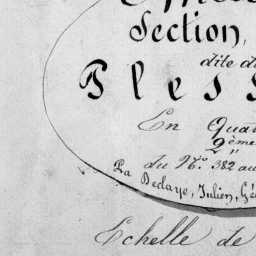 Section,
dite d
Pless
En Qua
2ème
du N.º 382 au
La Declaye, Julien, Gé
Echelle de